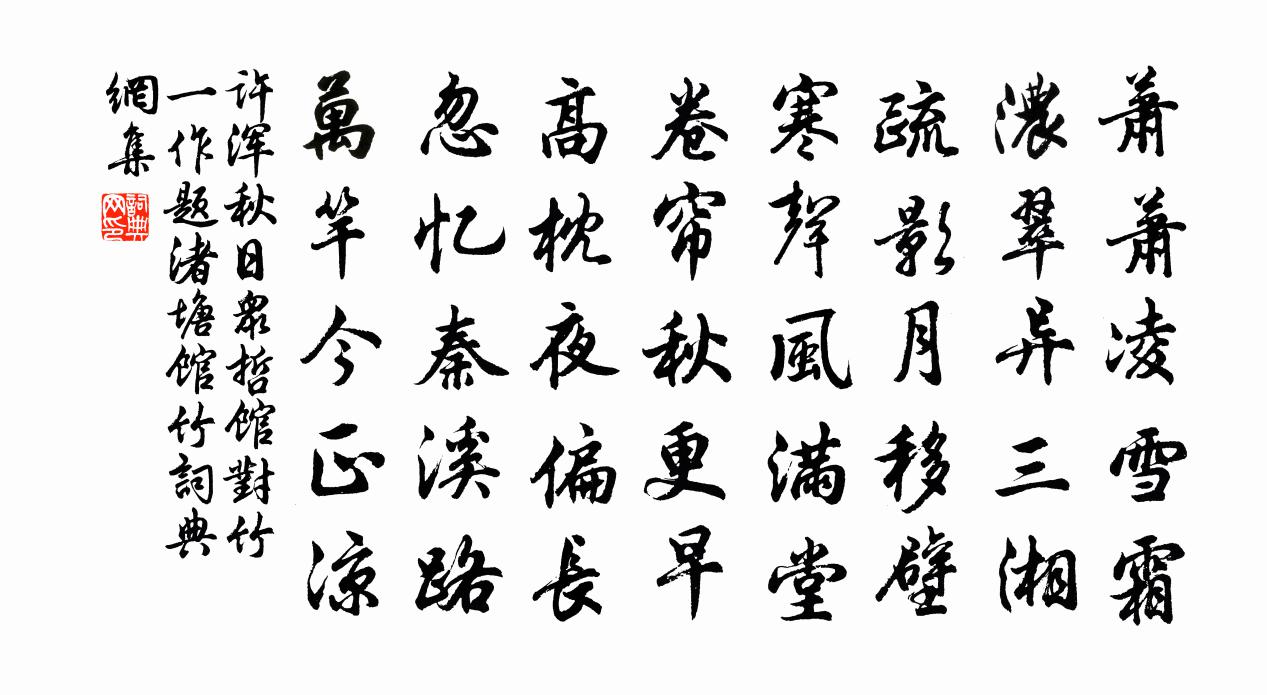 蕭蕭凌雪霜
濃翠异三湘
疏影月移壁
寒聲風滿堂
卷帘秋更早
高枕夜偏長
忽忆秦溪路
萬竿今正涼
许浑秋日眾哲館對竹
一作题渚塘館竹詞典
網集
詞典網印